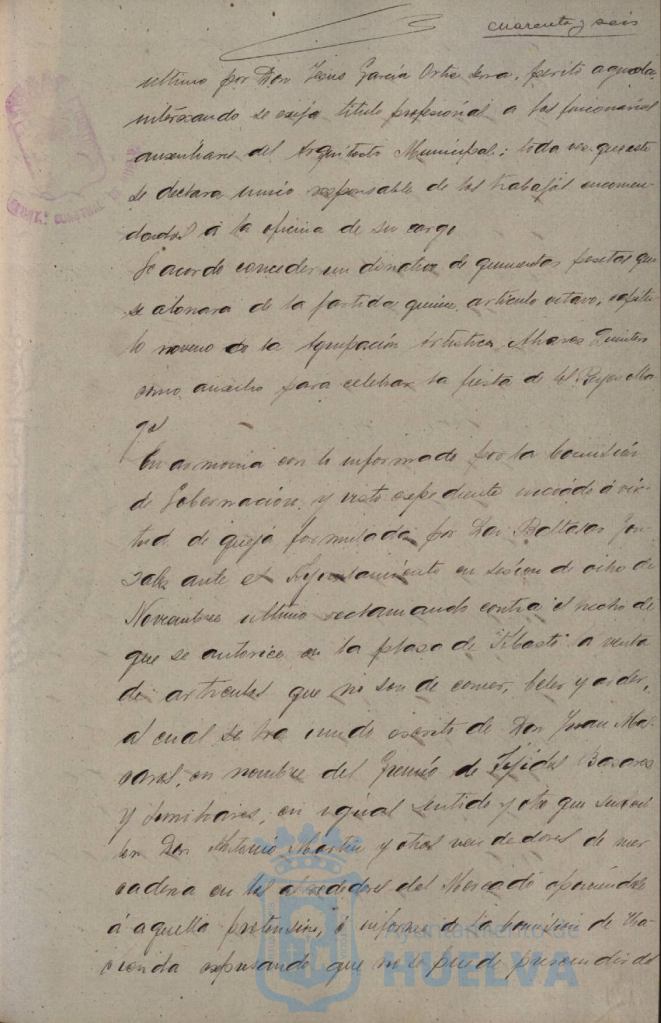 cuarenta y seis
ultimo por Don Jesús García Ortiz perito
interesando se exija titulo profesional a los funcionarios
auxiliares del Arquitecto Municipal; toda vez que este
se declara unico responsable de los trabajos encomen-
dados á la oficina de su cargo
Se acordo conceder un donativo de quinientas pesetas que
se abonará de la partida quince, articulo octavo, capitu-
lo noveno a la Agrupación Artistica Alvarez Quintero
como auxilio para celebrar la fiesta de los Reyes Ma-
gos
En armonia con lo informado por la Comisión
de Gobernación y visto expediente iniciado á vir-
tud de queja formulada por Don Baltasar Gon-
zalez ante el Ayuntamiento en sesion de ocho de
Noviembre ultimo reclamando contra el hecho de
que se autorice en la plaza de Abasto la venta
de articulos que no son de comer, beber y arder,
al cual se ha unido escrito de Don Juan
en nombre del Gremio de Tejidos Bazares
y similares, en igual sentido y otro que suscri-
ben Don Antonio Martin y otros vendedores de mer-
caderia en los alrededores del Mercado oponiendose
á aquella pretensión, é informe de la Comisión de Ha-
cienda expresando que no se puede prescindir de
Ayuntamiento de
HUELVA